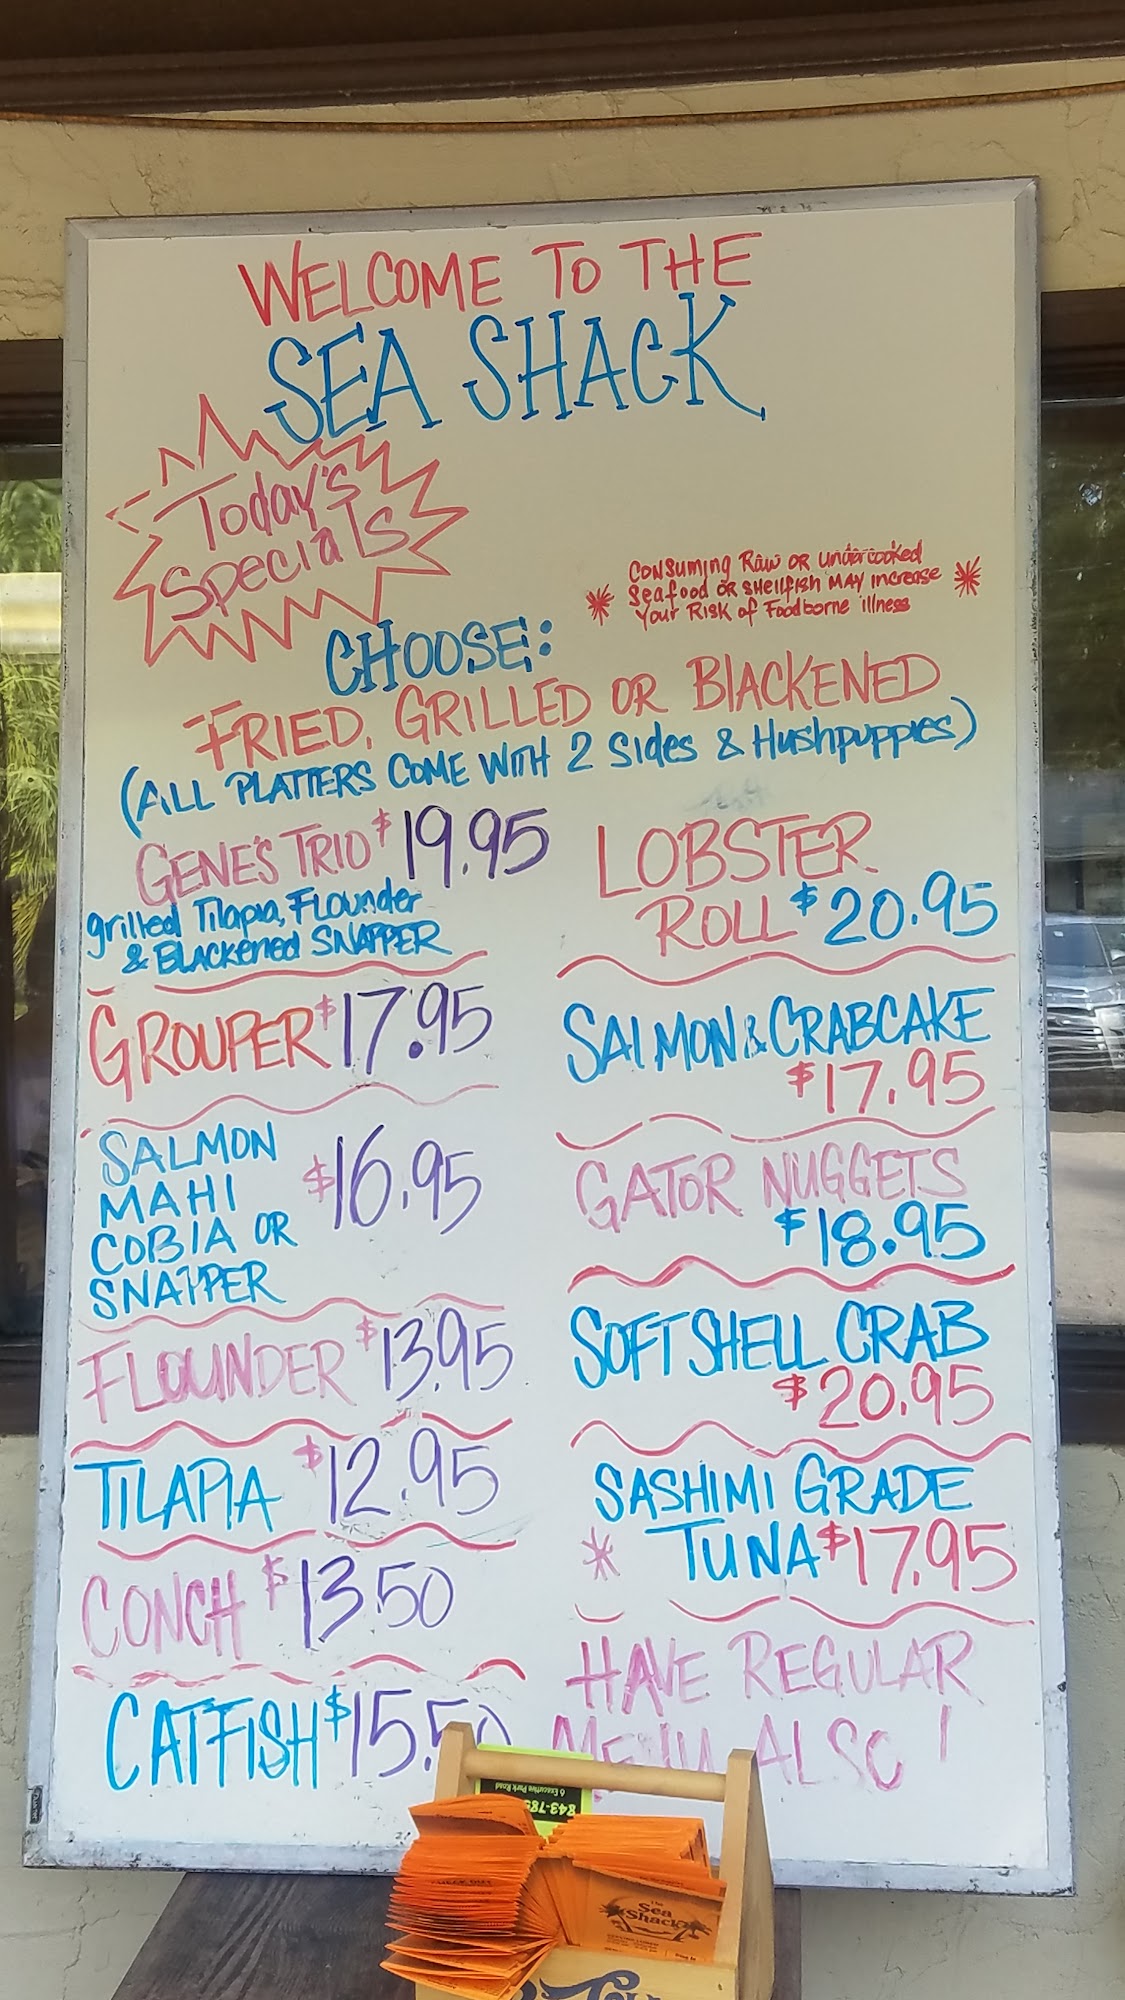 WELCOME TO THE
SEA SHACK
Today's
Specials
* CONSUMING RAW OR undercooked *
Seafood OR SHEllfish MAY increase
Your RISK of Foodborne illness
CHOOSE:
FRIED, GRILLED OR BLACKENED
(ALL PLATTERS COME WITH 2 Sides & Hushpuppies)
GENE'S TRIO $19.95
grilled Tilapia, Flounder
& BLACKENED SNAPPER
GROUPER $17.95
SALMON
MAHI $16.95
COBIA OR
SNAPPER
FLOUNDER $13.95
TILAPIA $12.95
CONCH $13.50
CATFISH $15.50
LOBSTER
ROLL $20.95
SALMON & CRABCAKE
$17.95
GATOR NUGGETS
$18.95
SOFT SHELL CRAB
$20.95
SASHIMI GRADE
* TUNA $17.95
HAVE REGULAR
MENU ALSO!
6 Executive Park Road
843-785
The
Sea
Shack